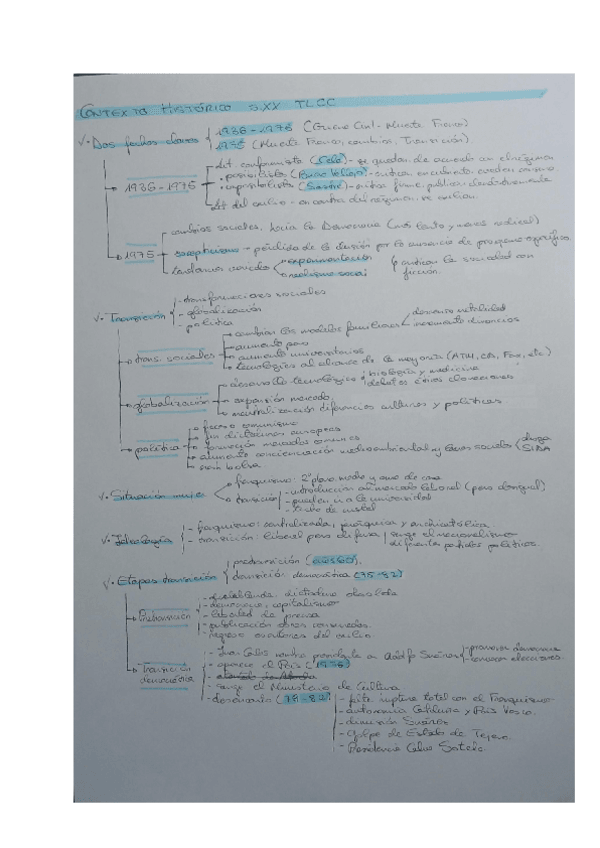 CONTEXTO HISTÓRICO S.XX TLCC
Dos fechas claves
1936-1975 (Guerra Civil - Muerte Franco)
1975 (Muerte Franco, cambios, Transición)
1936-1975
Lit conformista (Cela) - se quedan de acuerdo con el régimen
posibilista (Buero Vallejo) - critica
imposibilista (Sastre) - critica
Lit del exilio - en contra del régimen, se exilian.
1975
cambios sociales, hacia la Democracia (más lento y menos radical)
escepticismo - pérdida de la ilusión por la ausencia de programa específico.
tendencias variadas
experimentación
realismo social
critican la sociedad con
ficción.
Transición
- transformaciones sociales
- globalización
- política
trans. sociales
cambian los modelos familiares
descenso natalidad
incremento divorcios
aumento paro
aumento universitarios
tecnologías al alcance de la mayoría (ATM, CDs, Fax, etc)
globalización
desarrollo tecnológico
biología y medicina
debates éticos clonaciones
expansión mercado
neutralización diferencias culturas y políticas
política
fracaso comunismo
fin dictaduras europeas
formación mercados comunes
aumento concienciación medioambiental y
droga
SIDA
Situación mujer
franquismo: 2º plano, madre y ama de casa
transición
- introducción al mercado laboral (pero desigual)
- pueden ir a la universidad
Ideología
- franquismo: centralizada,
- transición: liberal pero difusa
surge el nacionalismo
diferentes partidos políticos.
Etapas transición
pretransición (años 60).
transición democrática (75-82)
Pretransición
dictadura obsoleta
capitalismo
- libertad de prensa
- publicación obras censuradas.
- regreso escritores del exilio.
Transición
democrática
- Juan Carlos nombra presidente a Adolfo Suárez
- promover democracia
- convocar elecciones.
- aparece el País (1976)
- surge el Ministerio de Cultura
- desencanto (78-82)
- falta ruptura total con el Franquismo
- autonomía Cataluña y País Vasco.
- dimisión Suárez
- golpe de Estado de Tejero
- Presidencia Calvo Sotelo.